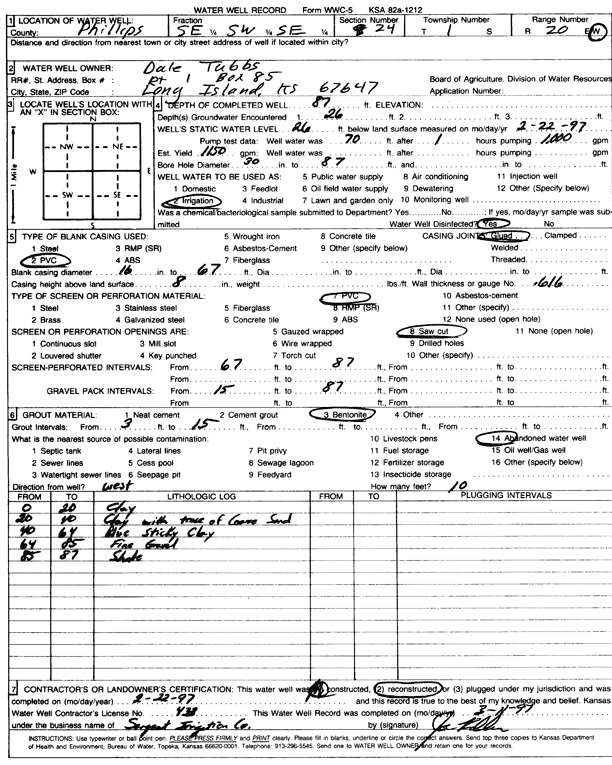 WATER WELL RECORD Form WWC-5 KSA 82a-1212
1 LOCATION OF WATER WELL: Fraction Section Number Township Number Range Number
County: Phillips SE ¼ SW ¼ SE ¼ 24 T 1 S R 20 E/W
Distance and direction from nearest town or city street address of well if located within city?
2 WATER WELL OWNER: Dale Tubbs
RR#, St. Address, Box # : Rt 1 Box 85 Board of Agriculture, Division of Water Resources
City, State, ZIP Code : Long Island, KS 67647 Application Number:
3 LOCATE WELL'S LOCATION WITH AN "X" IN SECTION BOX:
N
NW NE
W E
SW SE
S
1 Mile
4 DEPTH OF COMPLETED WELL 87 ft. ELEVATION:
Depth(s) Groundwater Encountered 1. 26 ft. 2. ft. 3. ft.
WELL'S STATIC WATER LEVEL 26 ft. below land surface measured on mo/day/yr 2-22-97
Pump test data: Well water was 70 ft. after 1 hours pumping 1,000 gpm
Est. Yield 1150 gpm: Well water was ft. after hours pumping gpm
Bore Hole Diameter 30 in. to 87 ft., and in. to ft.
WELL WATER TO BE USED AS: 5 Public water supply 8 Air conditioning 11 Injection well
1 Domestic 3 Feedlot 6 Oil field water supply 9 Dewatering 12 Other (Specify below)
2 Irrigation 4 Industrial 7 Lawn and garden only 10 Monitoring well
Was a chemical/bacteriological sample submitted to Department? Yes No ; If yes, mo/day/yr sample was sub-
mitted Water Well Disinfected? Yes No
5 TYPE OF BLANK CASING USED: 5 Wrought iron 8 Concrete tile CASING JOINTS: Glued Clamped
1 Steel 3 RMP (SR) 6 Asbestos-Cement 9 Other (specify below) Welded
2 PVC 4 ABS 7 Fiberglass Threaded
Blank casing diameter 16 in. to 67 ft., Dia in. to ft., Dia in. to ft.
Casing height above land surface 8 in., weight lbs./ft. Wall thickness or gauge No. .616
TYPE OF SCREEN OR PERFORATION MATERIAL: 7 PVC 10 Asbestos-cement
1 Steel 3 Stainless steel 5 Fiberglass 8 RMP (SR) 11 Other (specify)
2 Brass 4 Galvanized steel 6 Concrete tile 9 ABS 12 None used (open hole)
SCREEN OR PERFORATION OPENINGS ARE: 5 Gauzed wrapped 8 Saw cut 11 None (open hole)
1 Continuous slot 3 Mill slot 6 Wire wrapped 9 Drilled holes
2 Louvered shutter 4 Key punched 7 Torch cut 10 Other (specify)
SCREEN-PERFORATED INTERVALS: From 67 ft. to 87 ft., From ft. to ft.
From ft. to ft., From ft. to ft.
GRAVEL PACK INTERVALS: From 15 ft. to 87 ft., From ft. to ft.
From ft. to ft., From ft. to ft.
6 GROUT MATERIAL: 1 Neat cement 2 Cement grout 3 Bentonite 4 Other
Grout Intervals: From 3 ft. to 15 ft., From ft. to ft., From ft. to ft.
What is the nearest source of possible contamination: 10 Livestock pens 14 Abandoned water well
1 Septic tank 4 Lateral lines 7 Pit privy 11 Fuel storage 15 Oil well/Gas well
2 Sewer lines 5 Cess pool 8 Sewage lagoon 12 Fertilizer storage 16 Other (specify below)
3 Watertight sewer lines 6 Seepage pit 9 Feedyard 13 Insecticide storage
Direction from well? west How many feet? 10
FROM TO LITHOLOGIC LOG FROM TO PLUGGING INTERVALS
0 20 Clay
20 40 Clay with trace of Coarse Sand
40 64 Blue Sticky Clay
64 85 Fine Gravel
85 87 Shale
7 CONTRACTOR'S OR LANDOWNER'S CERTIFICATION: This water well was (1) constructed, (2) reconstructed, or (3) plugged under my jurisdiction and was
completed on (mo/day/year) 2-22-97 and this record is true to the best of my knowledge and belief. Kansas
Water Well Contractor's License No. 438 This Water Well Record was completed on (mo/day/yr)
under the business name of Sargent Irrigation Co. by (signature)
INSTRUCTIONS: Use typewriter or ball point pen. PLEASE PRESS FIRMLY and PRINT clearly. Please fill in blanks, underline or circle the correct answers. Send top three copies to Kansas Department
of Health and Environment, Bureau of Water, Topeka, Kansas 66620-0001. Telephone: 913-296-5545. Send one to WATER WELL OWNER and retain one for your records.